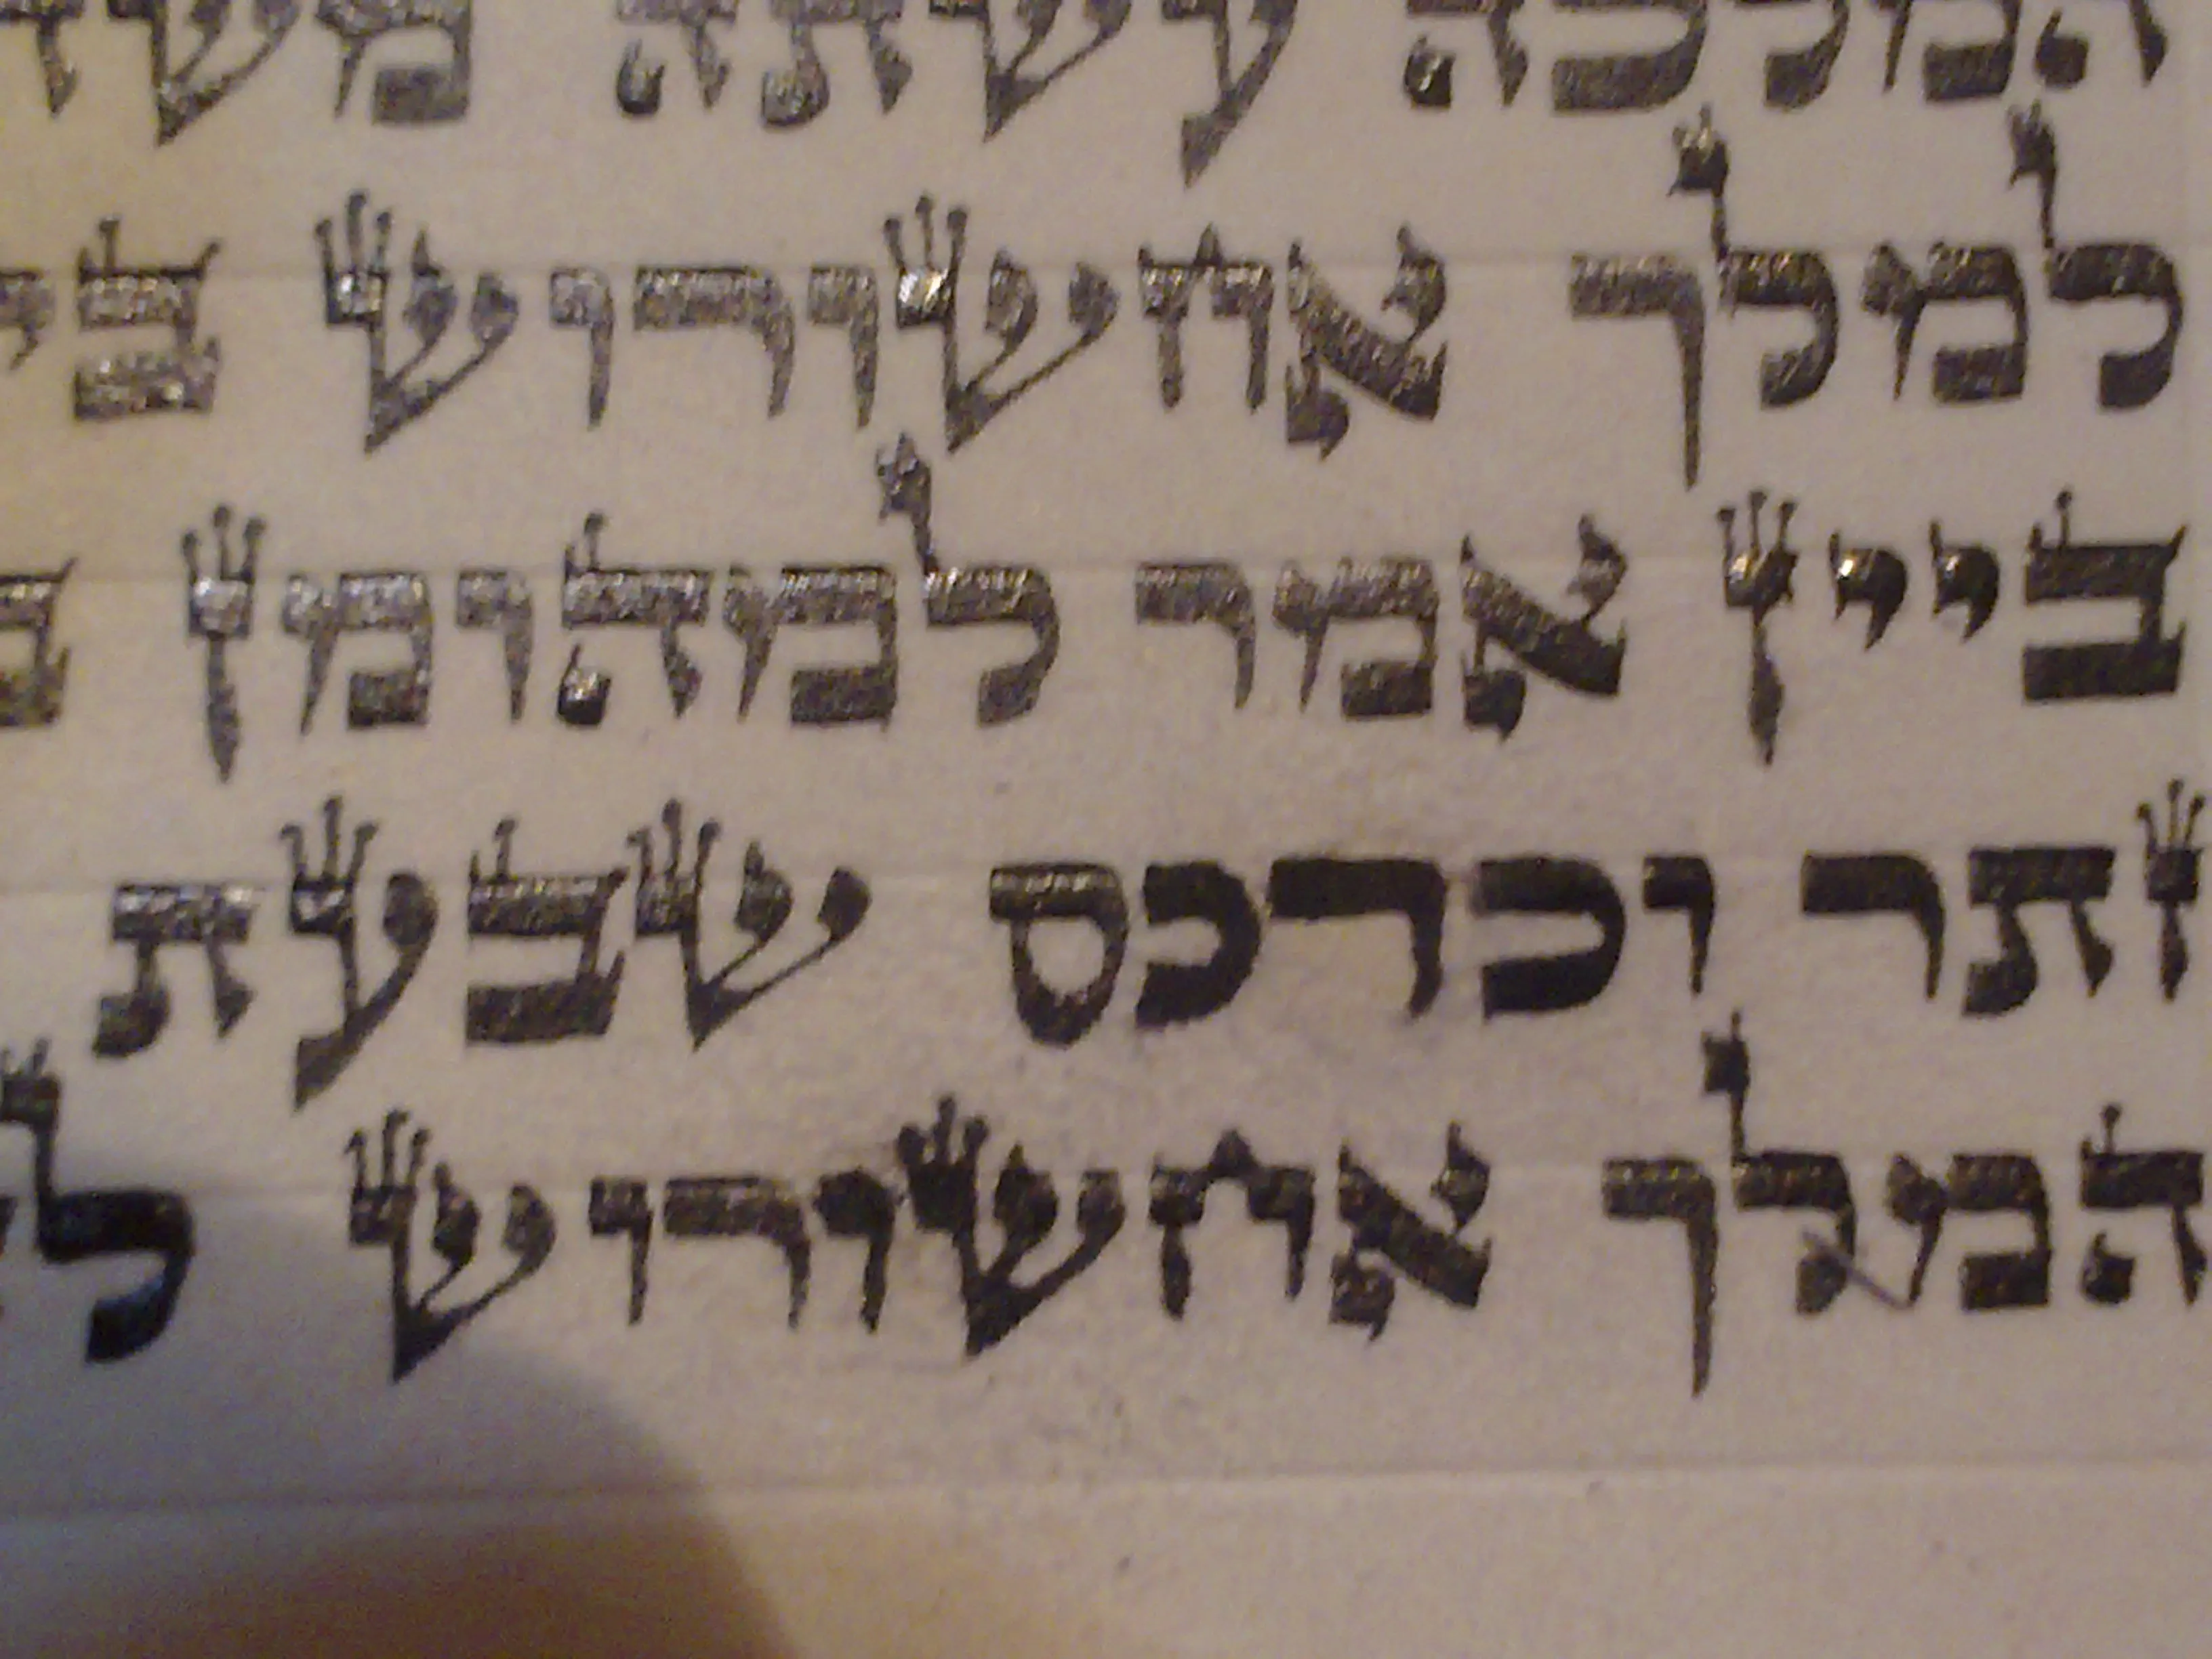 המלכה עשתה
למלך אחשורוש
ביין אמר למהומן
זתר וכרכס שבעת
המלך אחשורוש